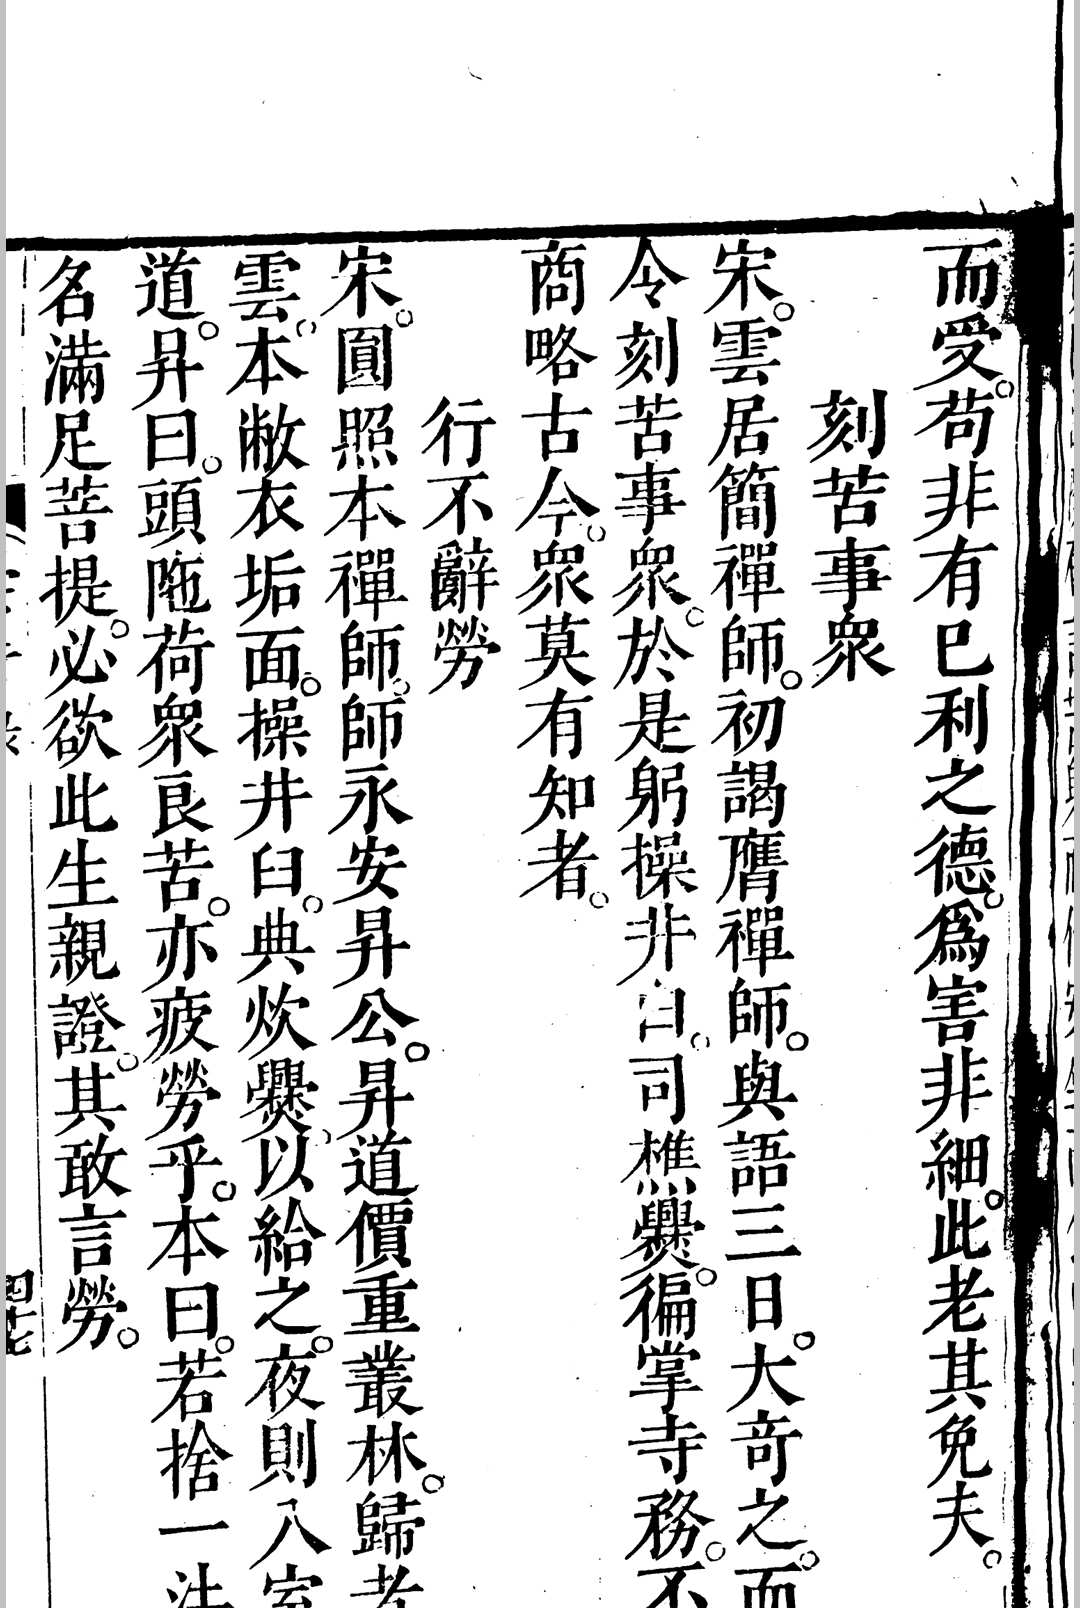 而受。苟非有巳利之德。爲害非細。此老其免夫。
刻苦事衆
宋。雲居簡禪師。初謁膺禪師。與語三日。大奇之。而
令刻苦事衆。於是躬操井臼。司樵爨。徧掌寺務。不
商略古今。衆莫有知者。
行不辭勞
宋。圓照本禪師。師永安昇公。昇道價重叢林。歸者
雲。本敝衣垢面。操井臼。典炊爨。以給之。夜則入室
道。昇曰。頭陁荷衆良苦。亦疲勞乎。本曰。若捨一法
名滿足菩提。必欲此生親證。其敢言勞。
四十七